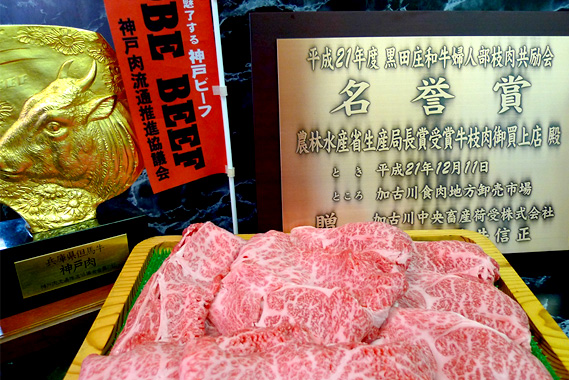 魅了する 神戸ビーフ
BE BEEF
神戸肉流通推進協議会
兵庫県但馬牛
神戸肉
平成21年度 黒田庄和牛婦人部枝肉共励会
名誉賞
農林水産省生産局長賞受賞牛枝肉御買上店 殿
とき 平成21年12月11日
ところ 加古川食肉地方卸売市場
贈 加古川中央畜産荷受株式会社
信正